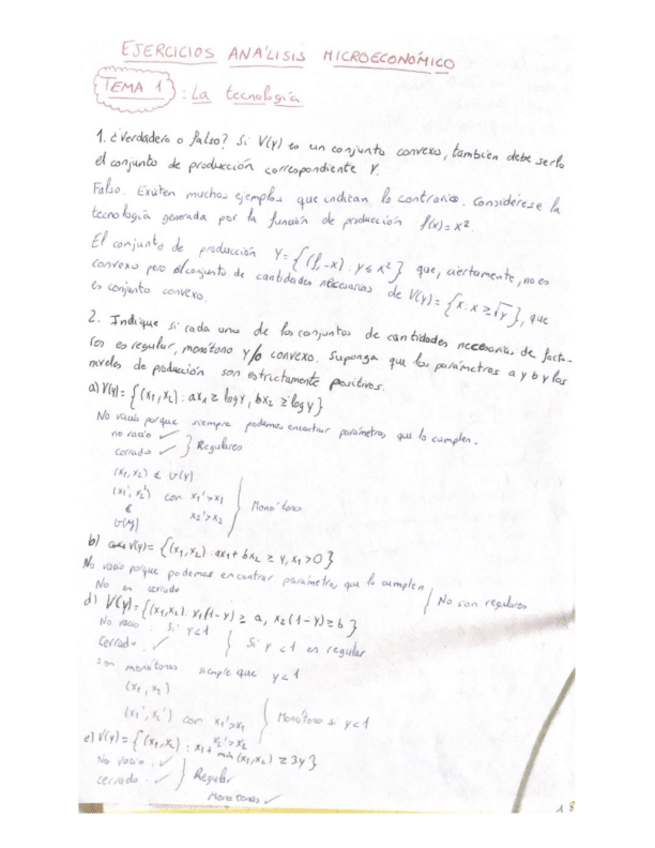 EJERCICIOS ANÁLISIS MICROECONÓMICO
TEMA 1 : La tecnología
1. ¿Verdadero o falso? Si V(y) es un conjunto convexo, también debe serlo
el conjunto de producción correspondiente Y.
Falso. Existen muchos ejemplos que indican lo contrario. Considérese la
tecnología generada por la función de producción f(x)=x².
El conjunto de producción Y={(y,-x): y≤x²} que, ciertamente, no es
convexo pero el conjunto de cantidades necesarias de V(y)={x: x≥√y}, que
es conjunto convexo.
2. Indique si cada uno de los conjuntos de cantidades necesarias de facto-
res es regular, monótono y/o convexo. Suponga que los parámetros a y b y los
niveles de producción son estrictamente positivos.
a) V(y)={(x₁,x₂): ax₁ ≥ log y, bx₂ ≥ log y}
No vacío porque siempre podemos encontrar parámetros que lo cumplen.
no vacío ✓
cerrado ✓ } Regulares
(x₁,x₂) ∈ V(y)
(x₁',x₂') con x₁'>x₁
∈ x₂'>x₂ } Monótonos
V(y)
b) V(y)={(x₁,x₂): ax₁+bx₂ ≥ y, x₁>0}
No vacío porque podemos encontrar parámetros que lo cumplen
No es cerrado } No son regulares
d) V(y)={(x₁,x₂): x₁(1-y) ≥ a, x₂(1-y) ≥ b}
No vacío : Si y<1
Cerrado. ✓ } Si y<1 es regular
son monótonas siempre que y<1
(x₁,x₂)
(x₁',x₂') con x₁'>x₁
x₂'>x₂ } Monótono si y<1
e) V(y)={(x₁,x₂): x₁+ min(x₁,x₂) ≥ 3y}
No vacío. ✓
cerrado. ✓ } Regular
Monótonas ✓